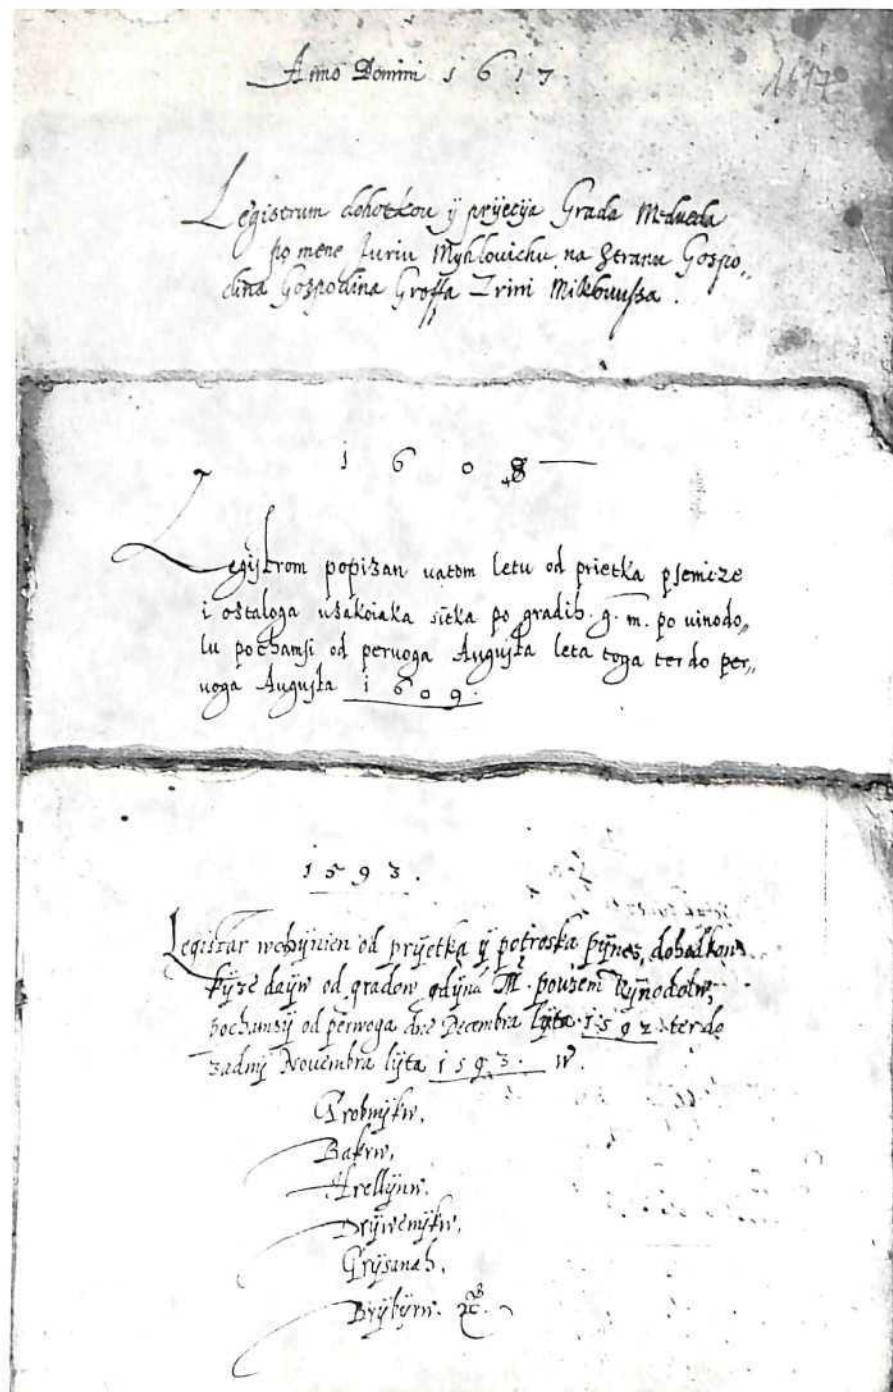 Anno Domini 1617
1617
Legistrum dohotkou ÿ prÿecÿa Grada Medueda
po mene Juriu Mÿhlouichu na Stranu Gospo„
dina Gospodina Groffa Zrini Miklouussa.
1608
Legistrom popisan uatom letu od prietka psenicze
i ostaloga usakoiaka sitka po gradih. g. m. po uinodo„
lu pochamsi od peruoga Augusta leta toga ter do per„
uoga Augusta 1609.
1593.
Legistar wchÿnien od prÿetka ÿ potroska pÿnez, dohadkow
kÿze daÿw od gradow gdÿna M. po wsem Wÿnodolw,
pochamsÿ od perwoga dne Decembra lÿta 1592 ter do
zadnÿ Nouembra lÿta 1593. W.
Grobnÿkw,
Bakrw,
Hrellÿnw.
Drÿwenÿkw,
Grÿsanah,
Brÿbÿrw. &c.